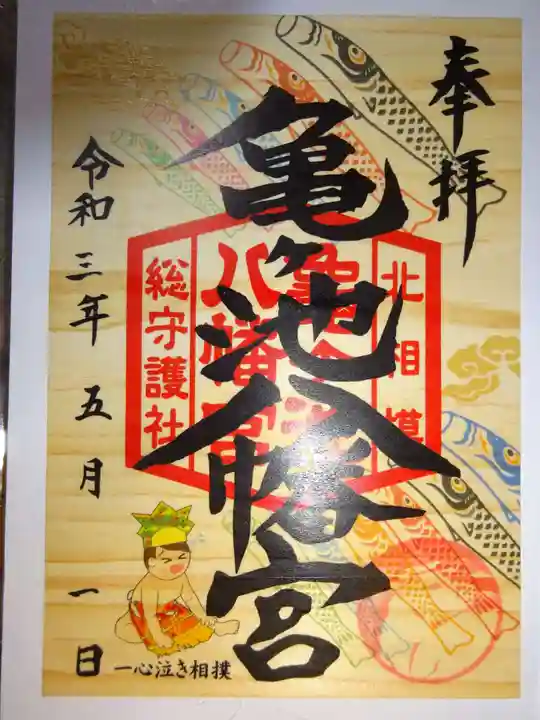 奉拝
北相模
亀ヶ池
八幡宮
総守護社
亀ヶ池八幡宮
令和三年五月一日
一心泣き相撲